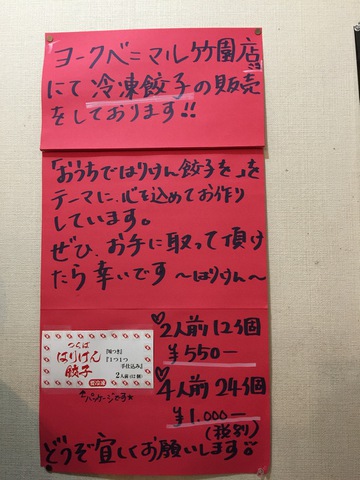 ヨークベニマル竹園店
にて冷凍餃子の販売
をしております!!
「おうちではりけん餃子を」を
テーマに、心を込めてお作り
しています。
ぜひ、お手に取って頂け
たら幸いです 〜はりけん〜
つくば
はりけん
餃子
【味つき】
『1つ1つ
手仕込み』
2人前(12個)
要冷凍
↑パッケージです☆
♡2人前 12個
¥550−
♡4人前 24個
¥1.000−
(税別)
どうぞ宜しくお願いします